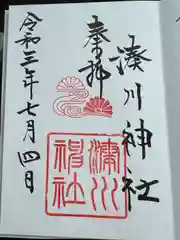 奉拝
湊川神社
令和三年七月四日
湊川神社